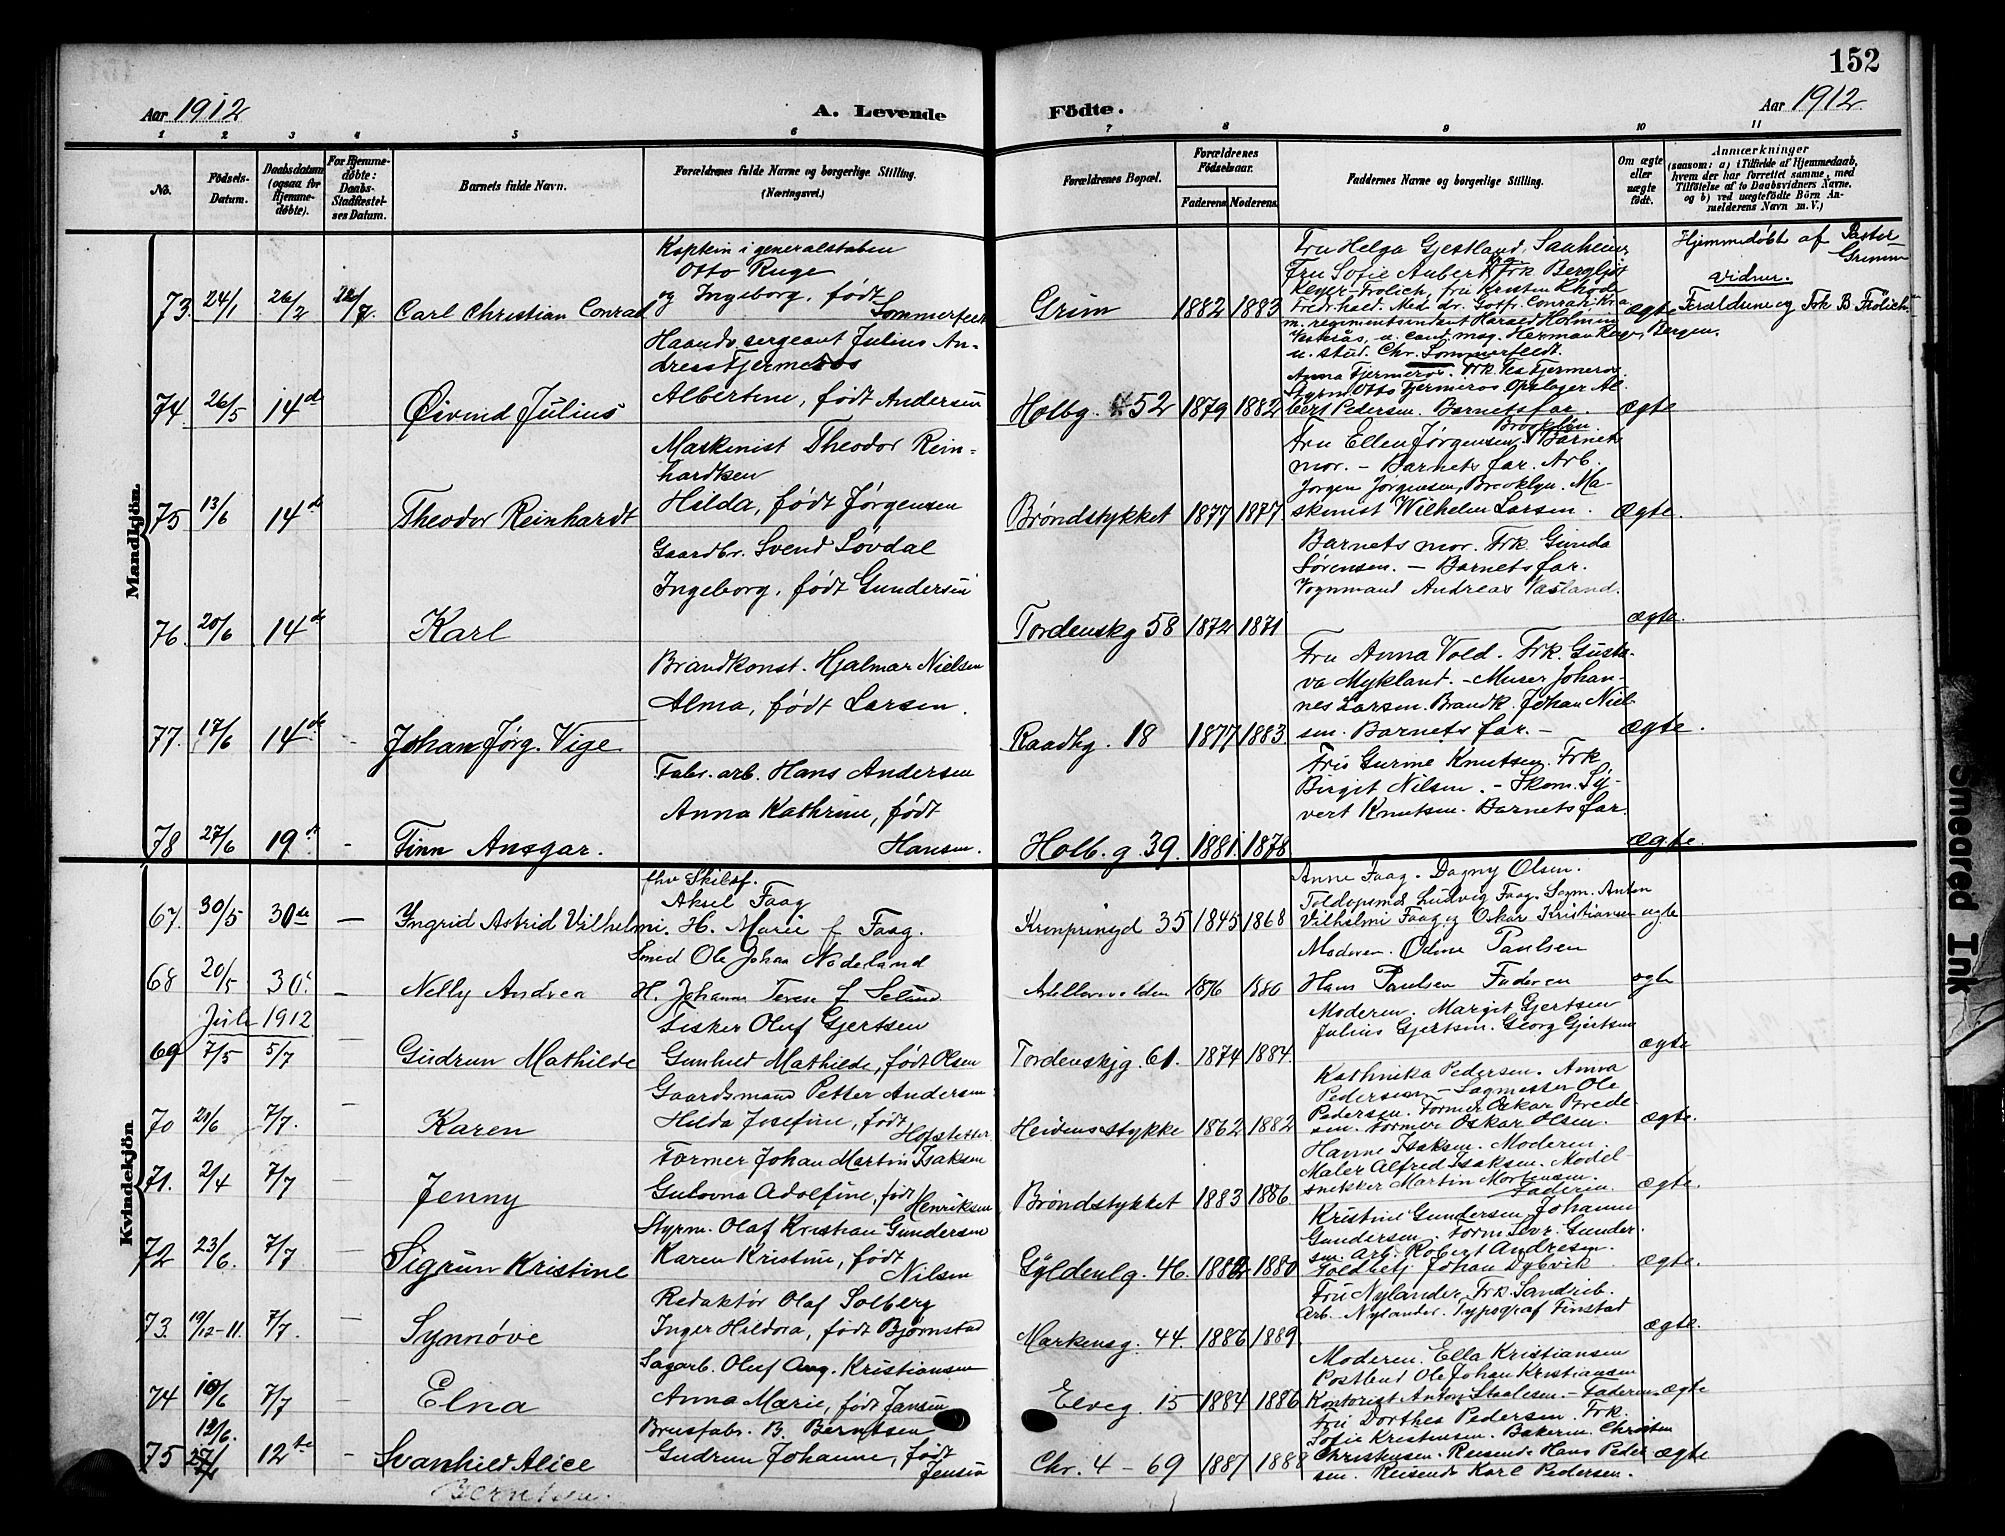 152
Aar 1912
A. Levende
Födte.
Aar 1912
1 2 3 4 5 6 7 8 9 10 11
No.
Födsels-Datum.
Daabsdatum (ogsaa for Hjemmedøbte).
For Hjemmedöbte: Daabs-Stadfæstelses Datum.
Barnets fulde Navn.
Forældrenes fulde Navne og borgerlige Stilling.
(Næringsvei.)
Forældrenes Bopæl.
Forældrenes Födselsaar.
Faderens. Moderens.
Faddernes Navne og borgerlige Stilling.
Om ægte eller uægte födt.
Anmærkninger
(saasom: a) i Tilfælde af Hjemmedaab, hvem der har forrettet samme, med Tilföielse af to Daabsvidners Navne, og b) ved uægtefödte Börn Anmelderens Navn m. V.)
Mandkjön.
Kaptein i generalstaben
Otto Ruge
og Ingeborg, født
Sommerfelt
73. 24/1 26/2 Carl Christian Conrad
Grim 1882 1883
Fru Helga Gjestland, Sauheim
Fru Sofie Aubert, Frk Bergljot
Keyer-Frølich, fru Kristen Khode
ægte
Hjemmedøbt af Pastor
Grimm
Vidner.
Forældrene og Frk B Frölich
Bergen.
u. stud. Chr. Sommerfeldt.
Haandv. sergeant Julius An-
dreas Fjermeros
Albertine, født Andersen
74. 26/5 14de Øivind Julius
Holbg. 52 1879 1882
Anna Fjermeros. Frk. Tea Fjermeros
Styrm. Otto Fjermeros Opslager Al-
bert Pedersen. Barnets far.
ægte
Maskinist Theodor Rein-
hardtsen
Hilda, født Jørgensen
75 13/6 14de Theodor Reinhardt
Brøndstykket 1877 1877
Brooklyn.
Fru Ellen Jørgensen. Barnets
mor. - Barnets far. Arb.
Jørgen Jørgensen, Brooklyn. Ma-
skinist Wilhelm Larsen.
ægte.
Gaardbr. Svend Løvdal
Ingeborg, født Gundersen
76. 20/6 14de Karl
Tordenskg 58 1872 1871
Barnets mor. Frk. Gunda
Sørensen. - Barnets far.
Vognmand Andreas Vasland.
ægte.
Brandkonst. Hjalmar Nielsen
Alma, født Larsen.
77. 17/6 14de - Johan Jørg. Vige
Raadhg. 18 1877 1883.
Fru Anna Vold. Frk. Gusta-
va Mykland. - Murer Johan-
nes Larsen. Brandk. Johan Niel-
sen. Barnets far. -
ægte.
Fabr. arb. Hans Andersen
Anna Kathrine, født
Hansen.
78 27/6 19de - Finn Ansgar.
Holb. g. 39. 1881. 1878
Fru Gurine Knutsen. Frk.
Birgit Nilsen. - Skom. Sy-
vert Knutsen. Barnets far.
ægte.
Kvindekjön
fhv Skibsf.
Aksel Faag
67. 30/5 30de - Yngrid Astrid Vilhelmi. H. Marie f Faag.
Kronprinsgd 35 1845 1868
Anne Faag. Dagny Olsen.
Toldopsmd Ludvig Faag. Sogm. Anton
Vilhelmi Faag og Oskar Kristiansen
ægte
Smed Ole Johan Nodeland
68 20/5 30. - Nelly Andrea H. Johanne Terese f Selund
1876 1880
Moderen. Odine Paulsen
Hans Paulsen Faderen
ægte
Juli 1912
Lisker Oluf Gjertsen
69 7/5 5/7 - Gudrun Mathilde Gunhild Mathilde, født Olsen
Tordenskjg. 61. 1874 1884.
Moderen. Margit Gjertsen
Julius Gjertsen. Georg Gjertsen
ægte
Gaardsmand Petter Andersen
Hilda Josefine, født
Hofstetter
70 21/6 7/7. - Karen
Heivensstykke 1862 1882
Kathinka Pedersen. Anna
Pedersen - Sagmester Ole
Pedersen. Former Oskar Brede-
sen. Former Oskar Olsen.
ægte.
Former Johan Martin Isaksen
Gulovna Adolfine, født
Henriksen
71. 2/4 7/7 - Jenny
Brøndstykket 1883 1886
Hanne Isaksen. Moderen.
Maler Alfred Isaksen. Model-
snekker Martin Mortensen.
Faderen.
ægte.
Styrm. Olaf Kristian Gundersen
Karen Kristine, født
Nilsen
72 23/6. 7/7 - Sigrun Kristine
Gyldenlg. 46. 1882 1880
Kristine Gundersen, Johanne
Gundersen. Form. Sevr. Gunder-
sen. Arb. Robert Andresen.
Toldbetj Johan Dybvik
ægte.
Redaktør Olaf Solberg
Inger Hildora, født Bjørnstad
73. 19/12-11. 7/7. - Synnøve
Markensg. 44. 1886 1889.
Fru Nylander. Frk Sandrib.
Arb. Nylander. Typograf Finstad
ægte.
Sagarb. Oluf Aug. Kristiansen
Anna Marie, født Jansen
74 10/6 7/7 - Elna
Elveg. 15 1884 1886
Moderen. Ella Kristiansen
Postbud Ole Johan Kristiansen
Kontorist Anton Staalesen. - Faderen.
ægte
Brusfabr. B. Berntsen
Gudrun Johanne, født
Jensen
12/6.
75 12te - Svanhild Alice
Berntsen.
Chr. 4 - 69 1887 1888
Fru Dorthea Pedersen. Frk.
Sofie Kristensen. Bakerm. Christen
Christensen. Reisende Hans Peder-
sen. Reisende Karl Pedersen.
ægte.
Smeared Ink